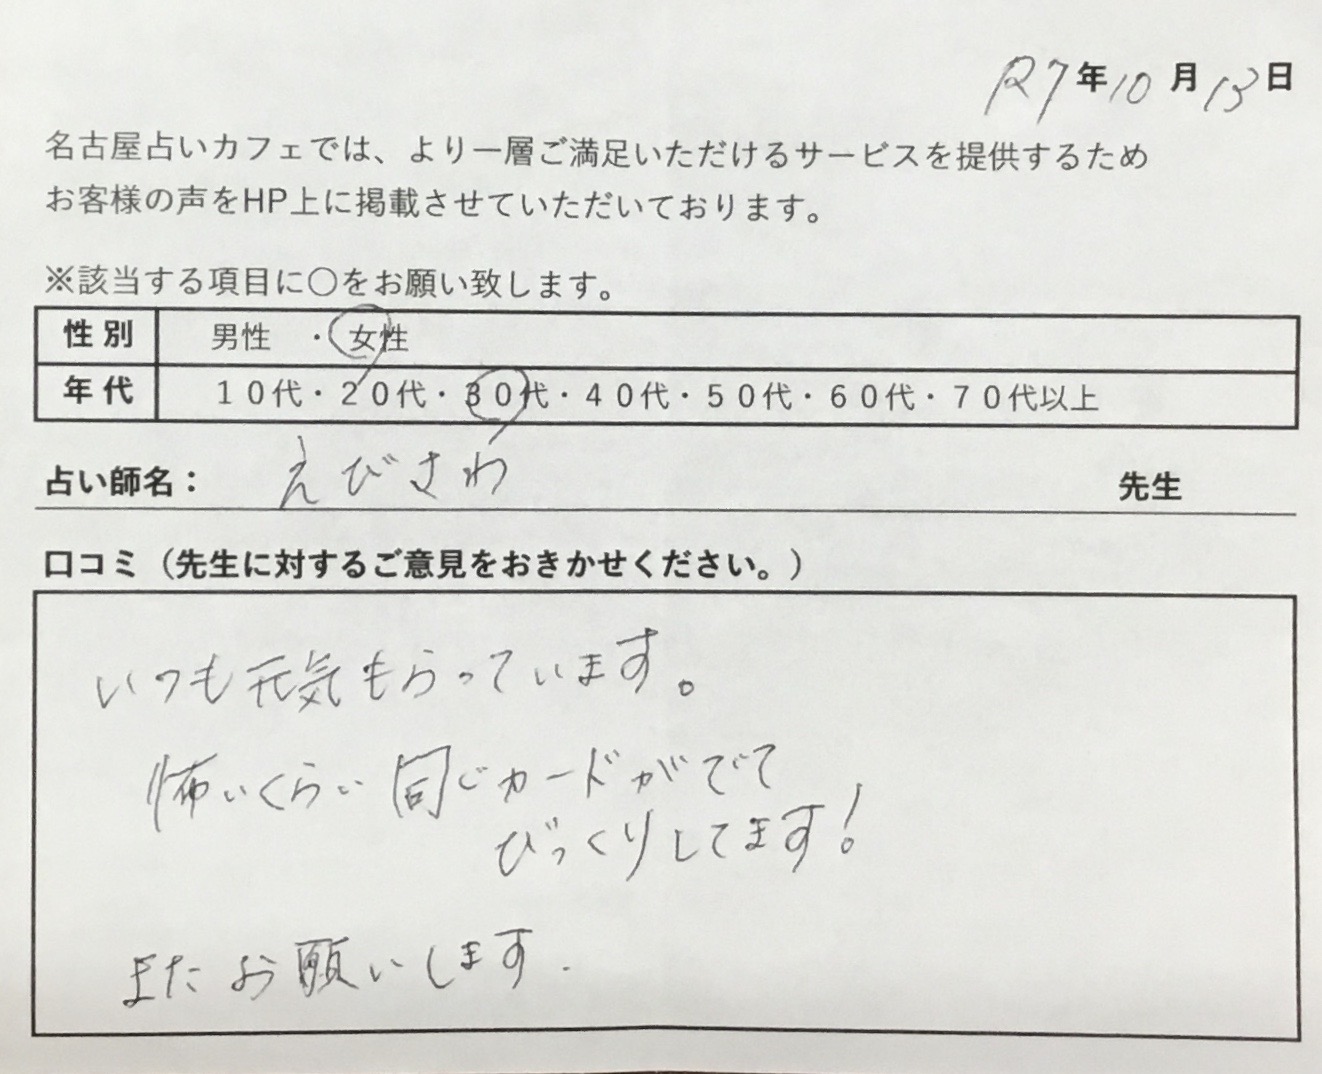 R7年10月13日
名古屋占いカフェでは、より一層ご満足いただけるサービスを提供するため
お客様の声をHP上に掲載させていただいております。
※該当する項目に〇をお願い致します。
性別 男性 ・ 女性
年代 10代・20代・30代・40代・50代・60代・70代以上
占い師名： えびさわ 先生
口コミ（先生に対するご意見をおきかせください。）
いつも元気もらっています。
怖いくらい同じカードがでて
びっくりしてます!
またお願いします.